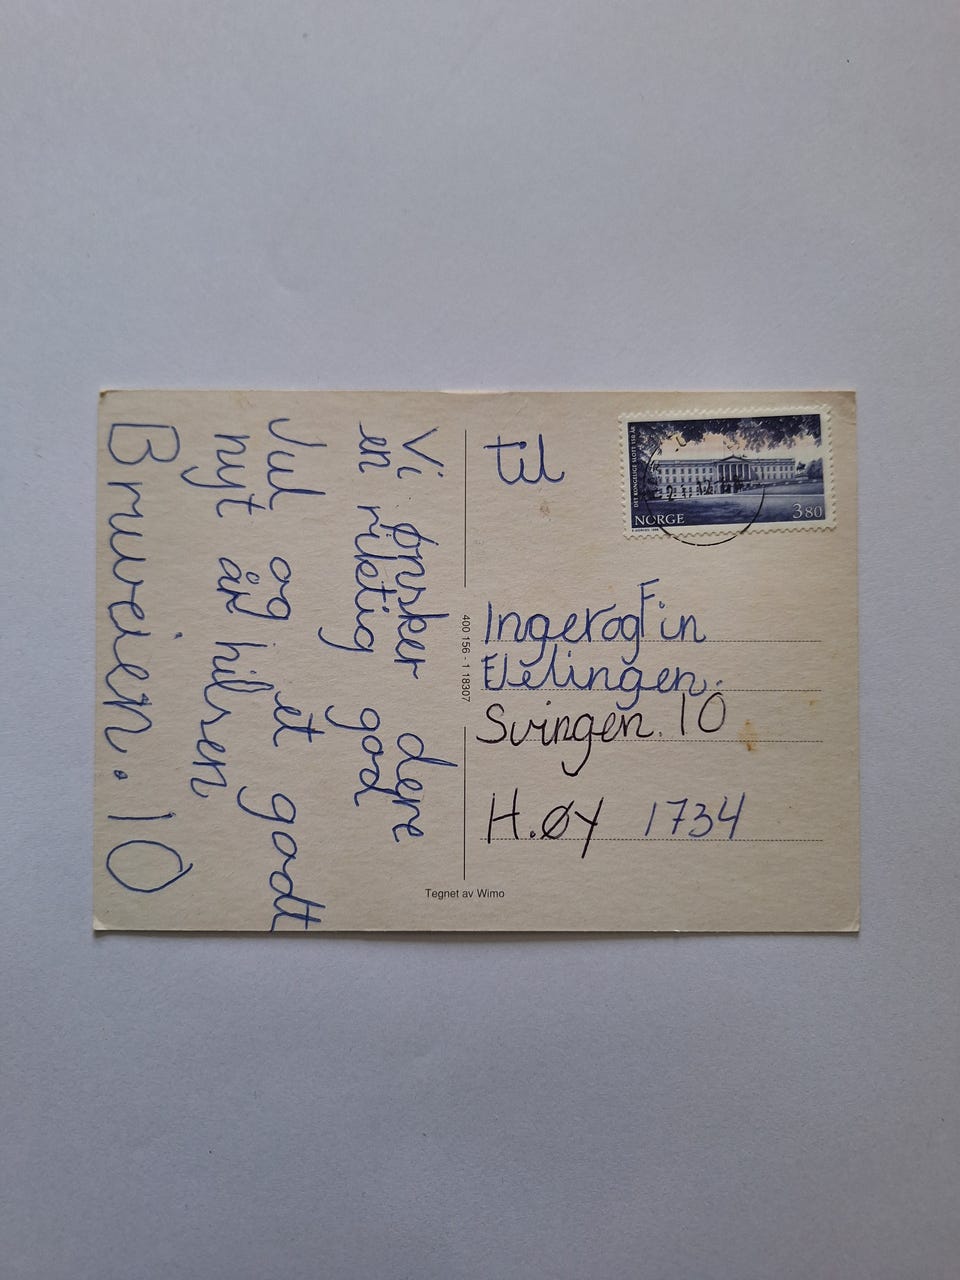 Vi ønsker dere
en riktig god
Jul og et godt
nyt år hilsen
Bruveien. 10
til
Inger og Finn
Svingen. 10
H.ØY 1734
DET KONGELIGE SLOTT 150 ÅR
NORGE
380
400 156 - 1 18307
Tegnet av Wimo